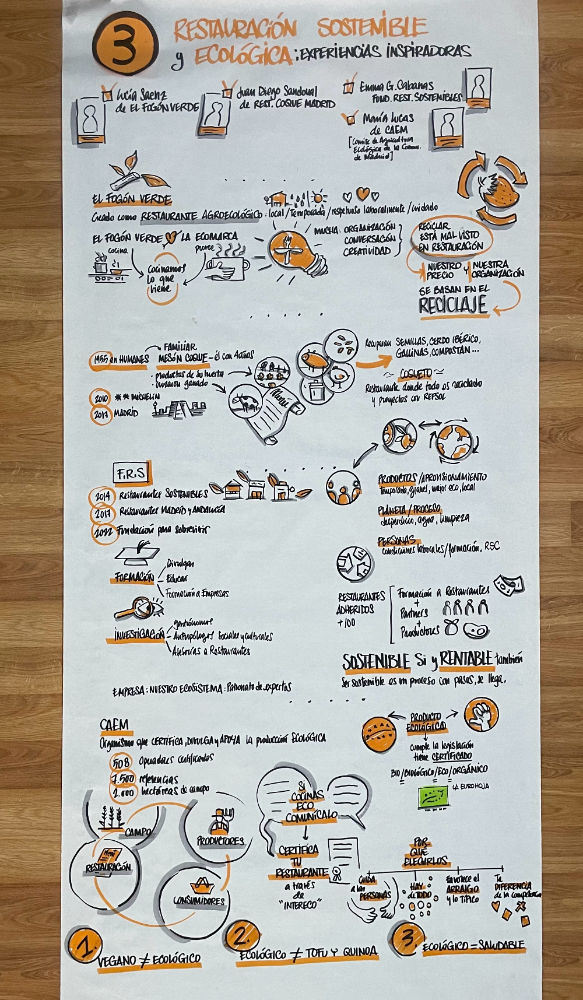 3 RESTAURACIÓN SOSTENIBLE
y ECOLÓGICA: EXPERIENCIAS INSPIRADORAS
Lucía Saenz
de EL FOGÓN VERDE
Juan Diego Sandoval
de REST. COQUE MADRID
Emma G. Cabanas
FUND. REST. SOSTENIBLES
María Lucas
de CAEM
EL FOGÓN VERDE
Creado como RESTAURANTE AGROECOLÓGICO: local/temporada/respetuoso laboralmente/cuidado
EL FOGÓN VERDE LA ECOMARCA
cocina
provee
Cocinamos
lo que
viene
MUCHA ORGANIZACIÓN
CONVERSACIÓN
CREATIVIDAD
RECICLAR
ESTÁ MAL VISTO
EN RESTAURACIÓN
NUESTRO
PRECIO
y NUESTRA
ORGANIZACIÓN
SE BASAN EN EL
RECICLAJE
en HUMANES
FAMILIAR
MESÓN COQUE
productos de su huerta
ganado
2010 ** MICHELIN
MADRID
Menú
Recuperan SEMILLAS, CERDO IBÉRICO,
GALLINAS, COMPOSTAN...
COQUETO
Restaurante donde todo es reciclado
y proyectos con REPSOL
F.R.S
2014 Restaurantes SOSTENIBLES
2017 Restaurantes MADRID y ANDALUCÍA
2022 Fundación para sobrevivir
FORMACIÓN
Divulgan
Educar
Formación a Empresas
INVESTIGACIÓN
Antropólogos sociales y culturales
Asesorías a Restaurantes
EMPRESA: NUESTRO ECOSISTEMA: Patronato de expertos
PRODUCTOS / APROVISIONAMIENTO
temporada, granel, mejor eco, local
PLANETA / PROCESO
desperdicio, agua, limpieza
PERSONAS
condiciones laborales/formación, RSC
RESTAURANTES
ADHERIDOS
+100
Formación a Restaurantes
+
Partners
+
Productores
SOSTENIBLE Sí y RENTABLE también
Ser sostenible es un proceso con pasos, se llega.
CAEM
Organismo que CERTIFICA, DIVULGA y APOYA la producción ECOLÓGICA
508 Operadores certificados
7.500 referencias
hectáreas de campo
CAMPO
PRODUCTORES
RESTAURACIÓN
CONSUMIDORES
SI
COCINAS
ECO
COMUNÍCALO
CERTIFICA
TU
RESTAURANTE
a través
de "INTERECO"
PRODUCTO
ECOLÓGICO
cumple la legislación
tiene CERTIFICADO
BIO/BIOLÓGICO/ECO/ORGÁNICO
LA EUROHOJA
POR
QUÉ
ELEGIRLOS
Cuida
a las
PERSONAS
HAY
de TODO
Favorece el
ARRAIGO
y lo TÍPICO
Te
DIFERENCIA
de la competencia
1. VEGANO ≠ ECOLÓGICO
2. ECOLÓGICO ≠ TOFU Y QUINOA
3. ECOLÓGICO = SALUDABLE